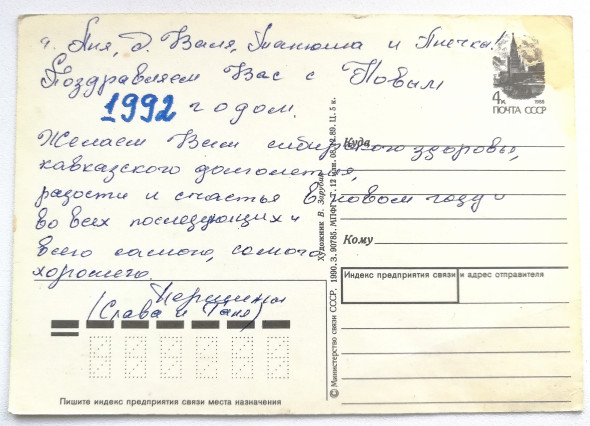 т. Аня, д. Валя, Танюша и Анечка!
Поздравляем Вас с Новым
1992 годом.
Желаем Вам сибирского здоровья,
кавказского долголетия,
радости и счастья в новом году и
во всех последующих и
всего самого, самого
хорошего.
Першины
(Слава и Таня)
4к
1988
ПОЧТА СССР
Куда
Кому
Индекс предприятия связи и адрес отправителя
Пишите индекс предприятия связи места назначения
© Министерство связи СССР, 1990. З. 90785. МПФГ. Т. 12 млн. 08.12.89. Ц. 5 к.
Художник В. Зорубин